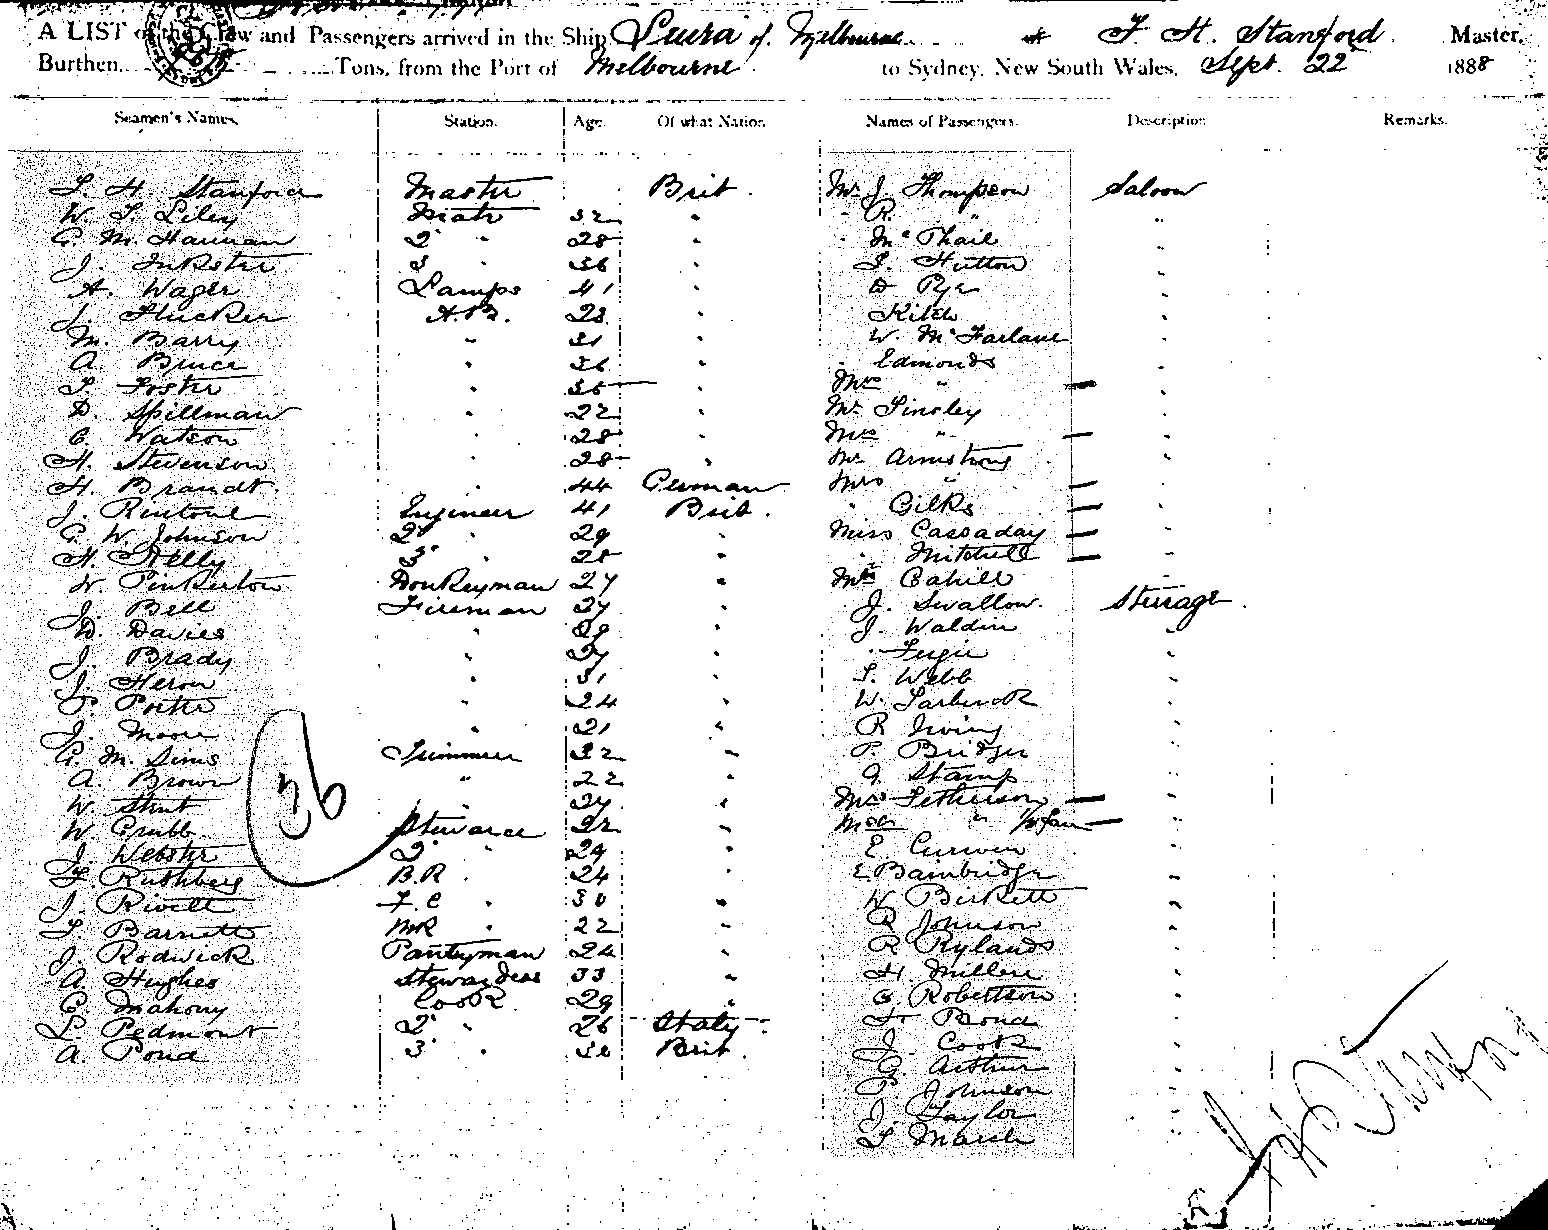 A LIST of the Crew and Passengers arrived in the Ship Leura of Melbourne F. H. Stanford Master,
Burthen Tons, from the Port of Melbourne to Sydney, New South Wales, Sept. 22 1888
Seamen's Names. Station. Age. Of what Nation. Names of Passengers. Description Remarks.
F. H. Stanford Master Brit. Mr J. Thompson Saloon
W. T. Liley Mate 32 " " R. " "
G. M. Hannan 2 " 28 " " McPhail "
J. Inkster 3 " 36 " S. Hutton "
A. Wager Lamps 41 " D Pye "
J. Flucker A.B. 23 " Kitch "
M. Barry " 31 " W. McFarlane "
A. Bruce " 36 " " Edmonds "
T. Foster " 35 " Mrs " "
D. Spillman " 22 " Mr Tinsley "
C. Watson " 28 " Mrs " "
H. Stevenson " 28 " Mr Armstrong "
H. Brandt. " 44 German Mrs " "
J. Rintoul Engineer 41 Brit. " Gilks "
G. W. Johnson 2 " 29 " Miss Cassaday "
H. Kelly 3 " 28 " " Mitchell "
W. Pinkerton Donkeyman 27 " Mr Cahill "
J. Bell Fireman 27 " J. Swallow. Steerage
D. Davies " 29 " J. Waldin "
J. Brady " 27 " "
J. Heron " 31 " S. Webb "
P. Porter " 24 " W. "
J. Moore " 21 " R Irving "
G. M. Sims Trimmer 32 " P. Bridger "
A. Brown " 22 " G Stamp "
W. " 27 " Mr Fetherson "
W. Grubb Steward 22 " " "
J. Webster 2 " 29 " E. Curwin "
F. Ruthberg B.R. " 24 " E Bambridge "
J. Rivett F. C " 30 " W Birkett "
T. Barnett MR " 22 " R Johnson "
J. Rodwick Pantryman 24 " R Rylands "
A. Hughes Stewardess 33 " H Miller "
C. Mahony Cook 29 " G Robertson "
L. Pedmont 2 " 26 Italy F. Bond "
A. Pond 3 " 30 Brit. J. Cook "
G. Arthur "
P Johnson "
J. Taylor "
36